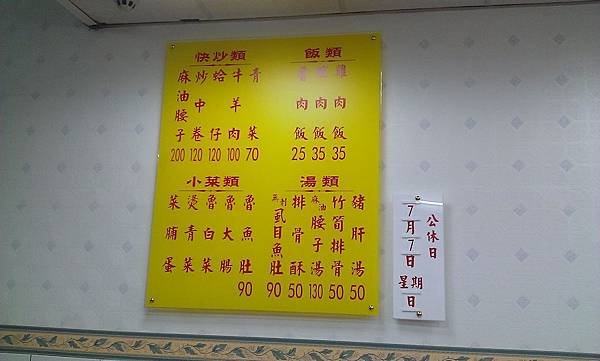 快炒類
青菜 70
牛羊肉 100
蛤仔 120
炒中卷 120
麻油腰子 200
飯類
雞肉飯 35
肉飯 35
肉飯 25
小菜類
魯魚肚 90
魯大腸
魯白菜
燙青菜
菜脯蛋
湯類
豬肝湯 50
竹筍排骨 50
麻油腰子湯 130
排骨酥 50
無刺虱目魚肚 90
公休日
7月7日
星期日